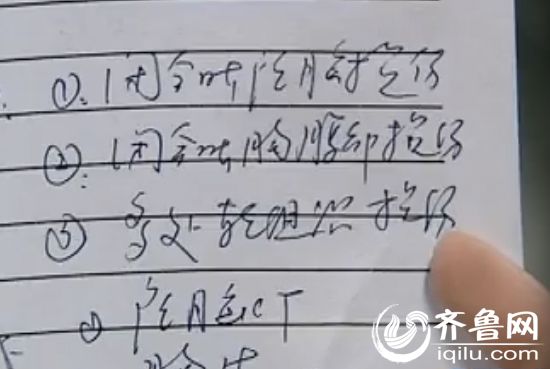 ①：闭合性颅脑损伤
②：闭合性胸腹部损伤
③ 多处软组织损伤
① 颅脑CT
齐鲁网
iqilu.com